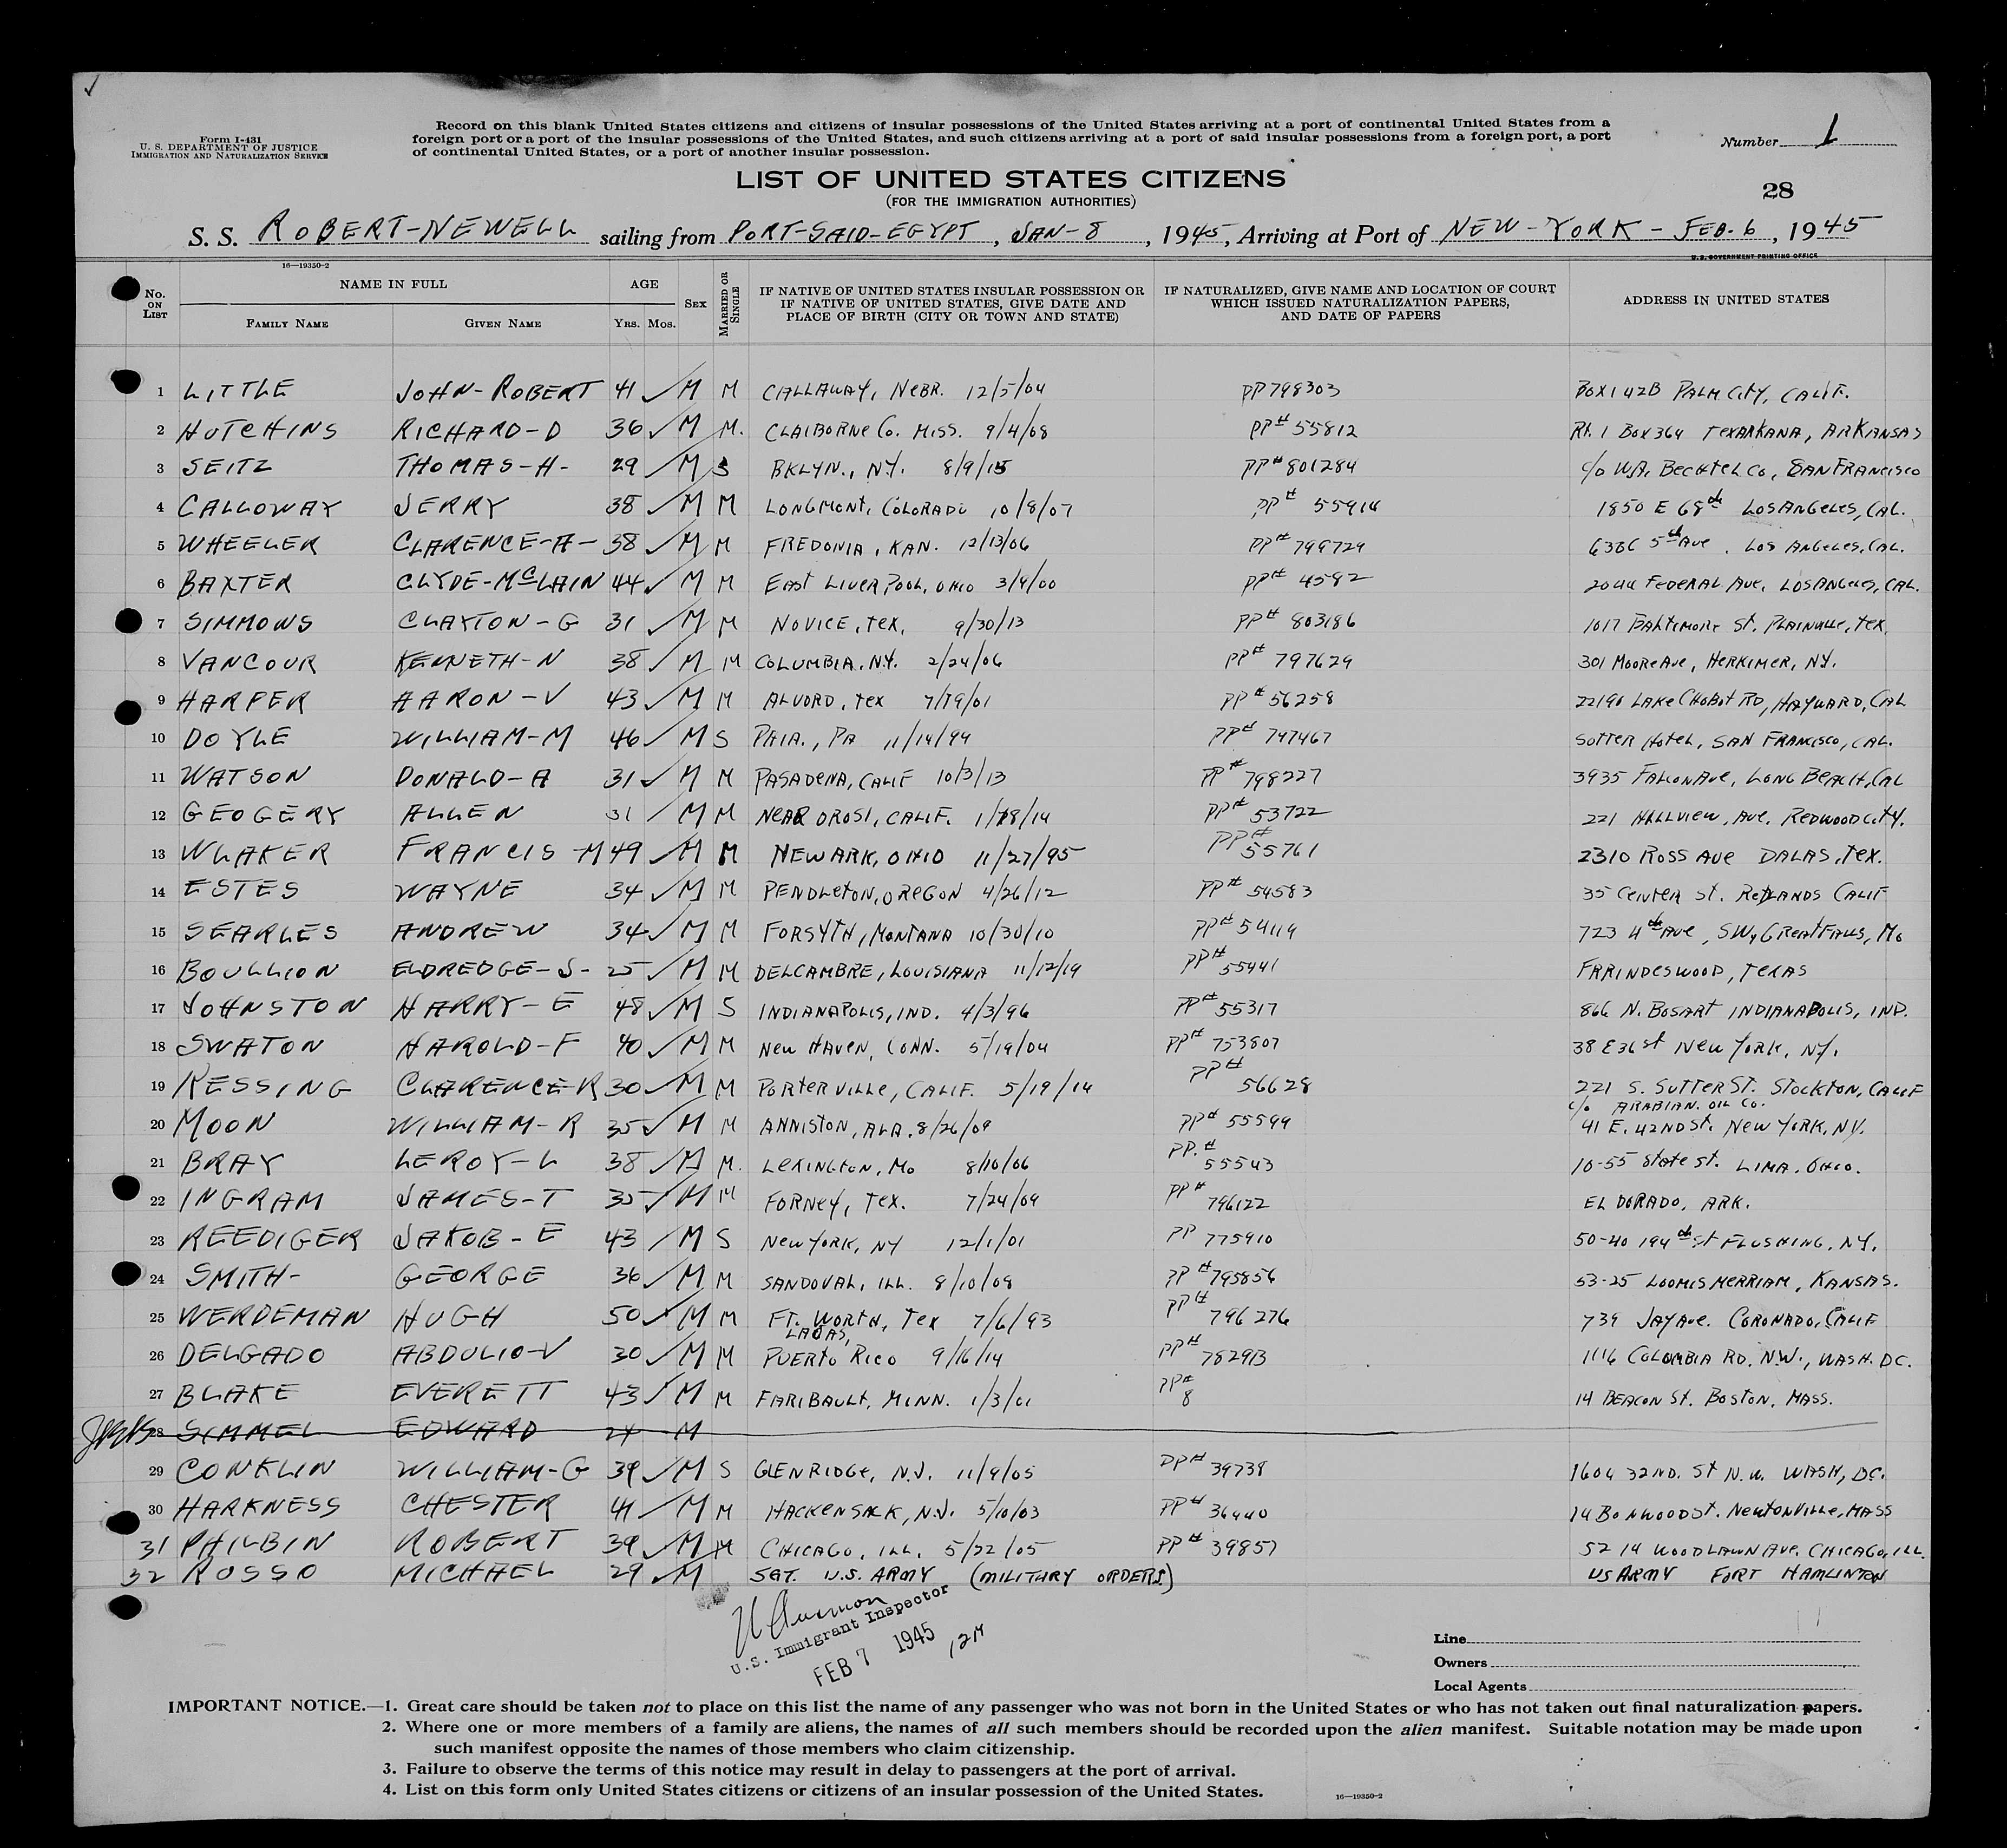 Form I-431
U. S. DEPARTMENT OF JUSTICE
IMMIGRATION AND NATURALIZATION SERVICE
Record on this blank United States citizens and citizens of insular possessions of the United States arriving at a port of continental United States from a
foreign port or a port of the insular possessions of the United States, and such citizens arriving at a port of said insular possessions from a foreign port, a port
of continental United States, or a port of another insular possession.
Number 1
LIST OF UNITED STATES CITIZENS
(FOR THE IMMIGRATION AUTHORITIES)
28
S. S. ROBERT-NEWELL sailing from PORT-SAID-EGYPT, JAN-8, 1945, Arriving at Port of NEW-YORK-FEB. 6, 1945
16—19350-2
U. S. GOVERNMENT PRINTING OFFICE
No. ON LIST
NAME IN FULL
FAMILY NAME
GIVEN NAME
AGE
YRS. MOS.
SEX
MARRIED OR SINGLE
IF NATIVE OF UNITED STATES INSULAR POSSESSION OR
IF NATIVE OF UNITED STATES, GIVE DATE AND
PLACE OF BIRTH (CITY OR TOWN AND STATE)
IF NATURALIZED, GIVE NAME AND LOCATION OF COURT
WHICH ISSUED NATURALIZATION PAPERS,
AND DATE OF PAPERS
ADDRESS IN UNITED STATES
1 LITTLE JOHN-ROBERT 41 ✓ M M CALLAWAY, NEBR. 12/5/04 PP 798303 BOX 142B PALM CITY, CALIF.
2 HUTCHINS RICHARD-D 36 ✓ M M. CLAIBORNE CO. MISS. 9/4/08 PP# 55812 Rt. 1 BOX 364 TEXARKANA, ARKANSAS
3 SEITZ THOMAS-H- 29 ✓ M S BKLYN., NY. 8/9/15 PP# 801284 c/o WA. BECHTEL CO, SAN FRANCISCO
4 CALLOWAY JERRY 38 ✓ M M LONGMONT, COLORADO 10/8/07 PP# 55914 1850 E 68th LOS ANGELES, CAL.
5 WHEELER CLARENCE-A- 38 ✓ M M FREDONIA, KAN. 12/13/06 PP# 799729 6386 5th AVE, LOS ANGELES, CAL.
6 BAXTER CLYDE-McLAIN 44 ✓ M M EAST LIVERPOOL, OHIO 3/4/00 PP# 4592 2044 FEDERAL AVE, LOS ANGELES, CAL.
7 SIMMONS CLAYTON-G 31 ✓ M M NOVICE, TEX. 9/30/13 PP# 803186 1017 BALTIMORE ST. PLAINVILLE, TEX.
8 VANCOUR KENNETH-N 38 ✓ M M COLUMBIA, N.Y. 2/24/06 PP# 797629 301 MOORE AVE, HERKIMER, NY.
9 HARPER AARON-V 43 ✓ M M ALVORD, TEX 7/19/01 PP# 56258 22190 LAKE CHOBOT RD, HAYWARD, CAL
10 DOYLE WILLIAM-M 46 ✓ M S PHIA., PA 11/14/94 PP# 747467 SUTTER HOTEL, SAN FRANCISCO, CAL.
11 WATSON DONALD-A 31 ✓ M M PASADENA, CALIF 10/3/13 PP# 798227 3935 FALCON AVE, LONG BEACH, CAL
12 GEOGERY ALLEN 31 ✓ M M NEAR OROSI, CALIF. 1/18/14 PP# 53722 221 HILLVIEW, AVE. REDWOOD CITY.
13 WLAKER FRANCIS-M 49 ✓ M M NEWARK, OHIO 11/27/95 PP# 55761 2310 ROSS AVE DALAS, TEX.
14 ESTES WAYNE 34 ✓ M M PENDLETON, OREGON 4/26/12 PP# 54583 35 CENTER ST. REDLANDS CALIF
15 SEARLES ANDREW 34 ✓ M M FORSYTH, MONTANA 10/30/10 PP# 54119 723 4th AVE, SW, GREAT FALLS, MO
16 BOULLION ELDREDGE-J- 25 ✓ M M DELCAMBRE, LOUISIANA 11/12/19 PP# 55441 TEXAS
17 JOHNSTON HARRY-E 48 ✓ M S INDIANAPOLIS, IND. 4/3/96 PP# 55317 866 N. BOSART INDIANAPOLIS, IND.
18 SWATON HAROLD-F 40 ✓ M M NEW HAVEN, CONN. 5/19/04 PP# 753807 38 E 36 st NEW YORK, NY.
19 RESSING CLARENCE-R 30 ✓ M M PORTERVILLE, CALIF. 5/19/14 PP# 56628 221 S. SUTTER ST. STOCKTON, CALIF
c/o ARABIAN. OIL CO.
20 MOON WILLIAM-R 35 ✓ M M ANNISTON, ALA. 8/26/09 PP# 55599 41 E. 42ND ST. NEW YORK, NY.
21 BRAY LEROY-L 38 ✓ M M. LEXINGTON, MO 8/10/06 PP.# 55543 10-55 STATE ST. LIMA, OHIO.
22 INGRAM JAMES-T 35 ✓ M M FORNEY, TEX. 7/24/09 PP# 796122 EL DORADO, ARK.
23 REEDIGER JAKOB-E 43 ✓ M S NEW YORK, NY 12/1/01 PP 775910 50-40 194th ST FLUSHING, NY.
24 SMITH- GEORGE 36 ✓ M M SANDOVAL, ILL. 8/10/08 PP# 795856 53-25 LOOMIS MERRIAM, KANSAS.
25 WERDEMAN HUGH 50 ✓ M M FT. WORTH, TEX 7/6/93 PP# 796276 739 JAY AVE. CORONADO, CALIF
26 DELGADO ABDULIO-V 30 ✓ M M LAOAS, PUERTO RICO 9/16/14 PP# 782913 1116 COLOMBIA RD. N.W., WASH. DC.
27 BLAKE EVERETT 43 ✓ M M FARIBAULT, MINN. 1/3/01 PP# 8 14 BEACON ST. BOSTON, MASS.
28 SIMMEL EDWARD 24 M
29 CONKLIN WILLIAM-G 39 ✓ M S GLENRIDGE, N.J. 11/9/05 PP# 39738 1604 32ND. ST N.W. WASH, DC.
30 HARKNESS CHESTER 41 ✓ M M HACKENSACK, N.J. 5/10/03 PP# 36440 14 BONWOOD ST. NEWTONVILLE, MASS
31 PHILBIN ROBERT 39 ✓ M M CHICAGO, ILL. 5/22/05 PP# 39857 5214 WOODLAWN AVE. CHICAGO, ILL.
32 ROSSO MICHAEL 29 ✓ M SGT. U.S. ARMY (MILITARY ORDERS) US ARMY FORT HAMLINTON
U.S. Immigrant Inspector
FEB 7 1945
Line
Owners
Local Agents
IMPORTANT NOTICE.—1. Great care should be taken not to place on this list the name of any passenger who was not born in the United States or who has not taken out final naturalization papers.
2. Where one or more members of a family are aliens, the names of all such members should be recorded upon the alien manifest. Suitable notation may be made upon
such manifest opposite the names of those members who claim citizenship.
3. Failure to observe the terms of this notice may result in delay to passengers at the port of arrival.
4. List on this form only United States citizens or citizens of an insular possession of the United States.
16—19350-2